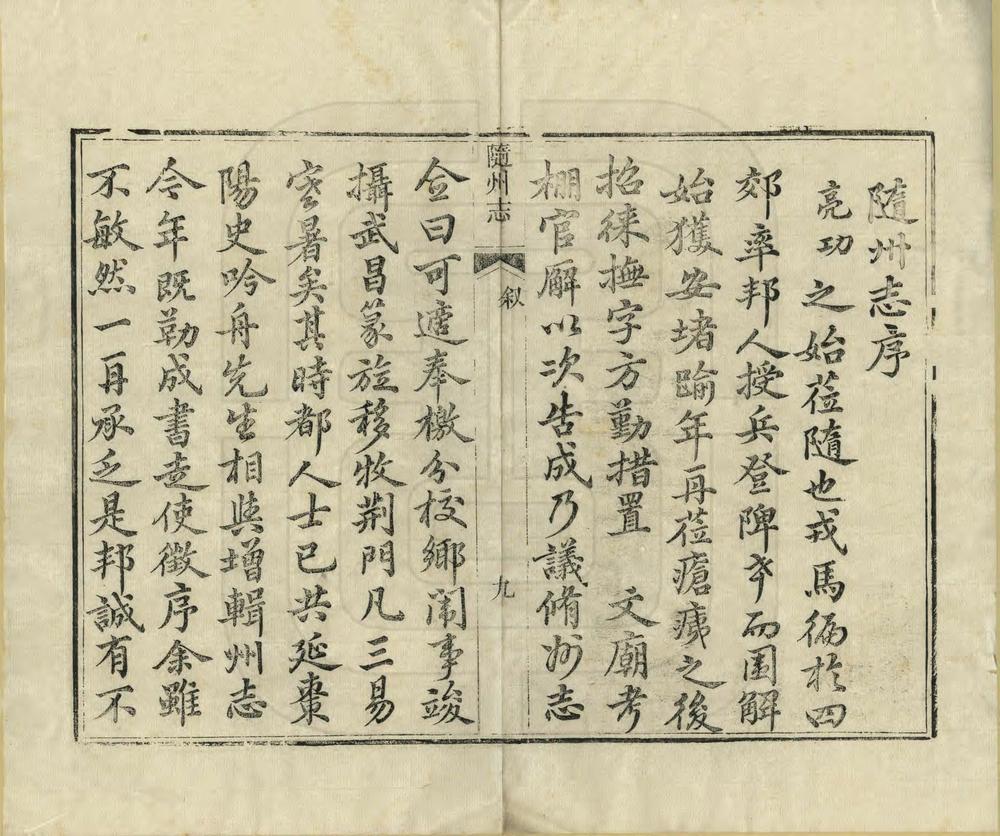 隨州志序
亮功之始蒞隨也戎馬徧於四
郊率邦人授兵登陴幸而圍解
始獲安堵踰年再蒞瘡痍之後
招徠撫字方勤措置　文廟考
棚官廨以次告成乃議脩州志
隨州志
叙
九
僉曰可適奉檄分校鄉闈事竣
攝武昌篆旋移牧荆門凡三易
寒暑矣其時都人士已共延棗
陽史吟舟先生相與增輯州志
今年既勒成書走使徵序余雖
不敏然一再承乏是邦誠有不